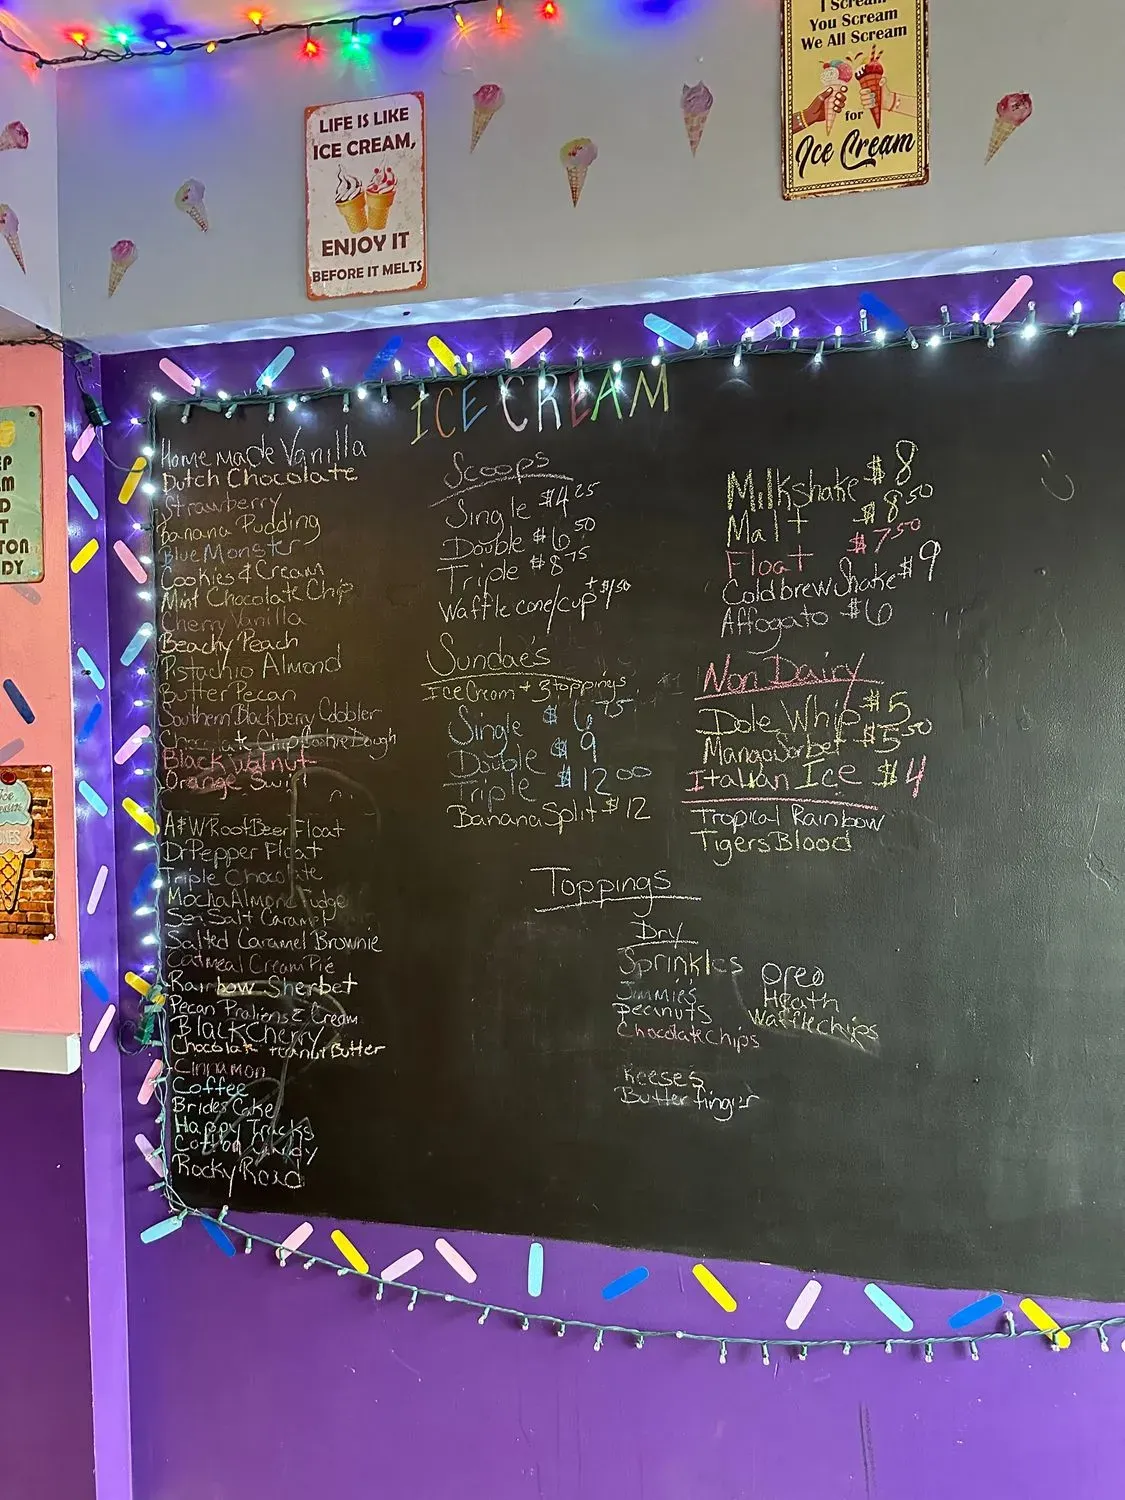 I Scream
You Scream
We All Scream
for
Ice Cream
LIFE IS LIKE
ICE CREAM,
ENJOY IT
BEFORE IT MELTS
ICE CREAM
Home made Vanilla
Dutch Chocolate
Strawberry
Banana Pudding
Blue Monster
Cookies & Cream
Mint Chocolate Chip
Cherry Vanilla
Beachy Peach
Pistachio Almond
Butter Pecan
Southern Blackberry Cobbler
Chocolate Chip Cookie Dough
Black Walnut
Orange Swirl
A&W Root Beer Float
Dr Pepper Float
Triple Chocolate
Mocha Almond Fudge
Sea Salt Caramel
Salted Caramel Brownie
Oatmeal Cream Pie
Rainbow Sherbet
Pecan Pralines & Cream
Black Cherry
Chocolate Peanut Butter
Cinnamon
Coffee
Brides Cake
Happy Tracks
Cotton Candy
Rocky Road
Scoops
Single $4.25
Double $6.50
Triple $8.75
Waffle cone/cup + $1.50
Sundae's
Ice Cream + 3 toppings
Single $6.75
Double $9
Triple $12.00
Banana Split $12
Milkshake $8
Malt $8.50
Float $7.50
Coldbrew Shake $9
Affogato $6
Non Dairy
Dole Whip $5
Mango Sorbet $5.50
Italian Ice $4
Tropical Rainbow
Tigers Blood
Toppings
Dry
Sprinkles
Jimmie's
peanuts
Chocolate Chips
Reese's
Butterfinger
Oreo
Heath
Waffle chips